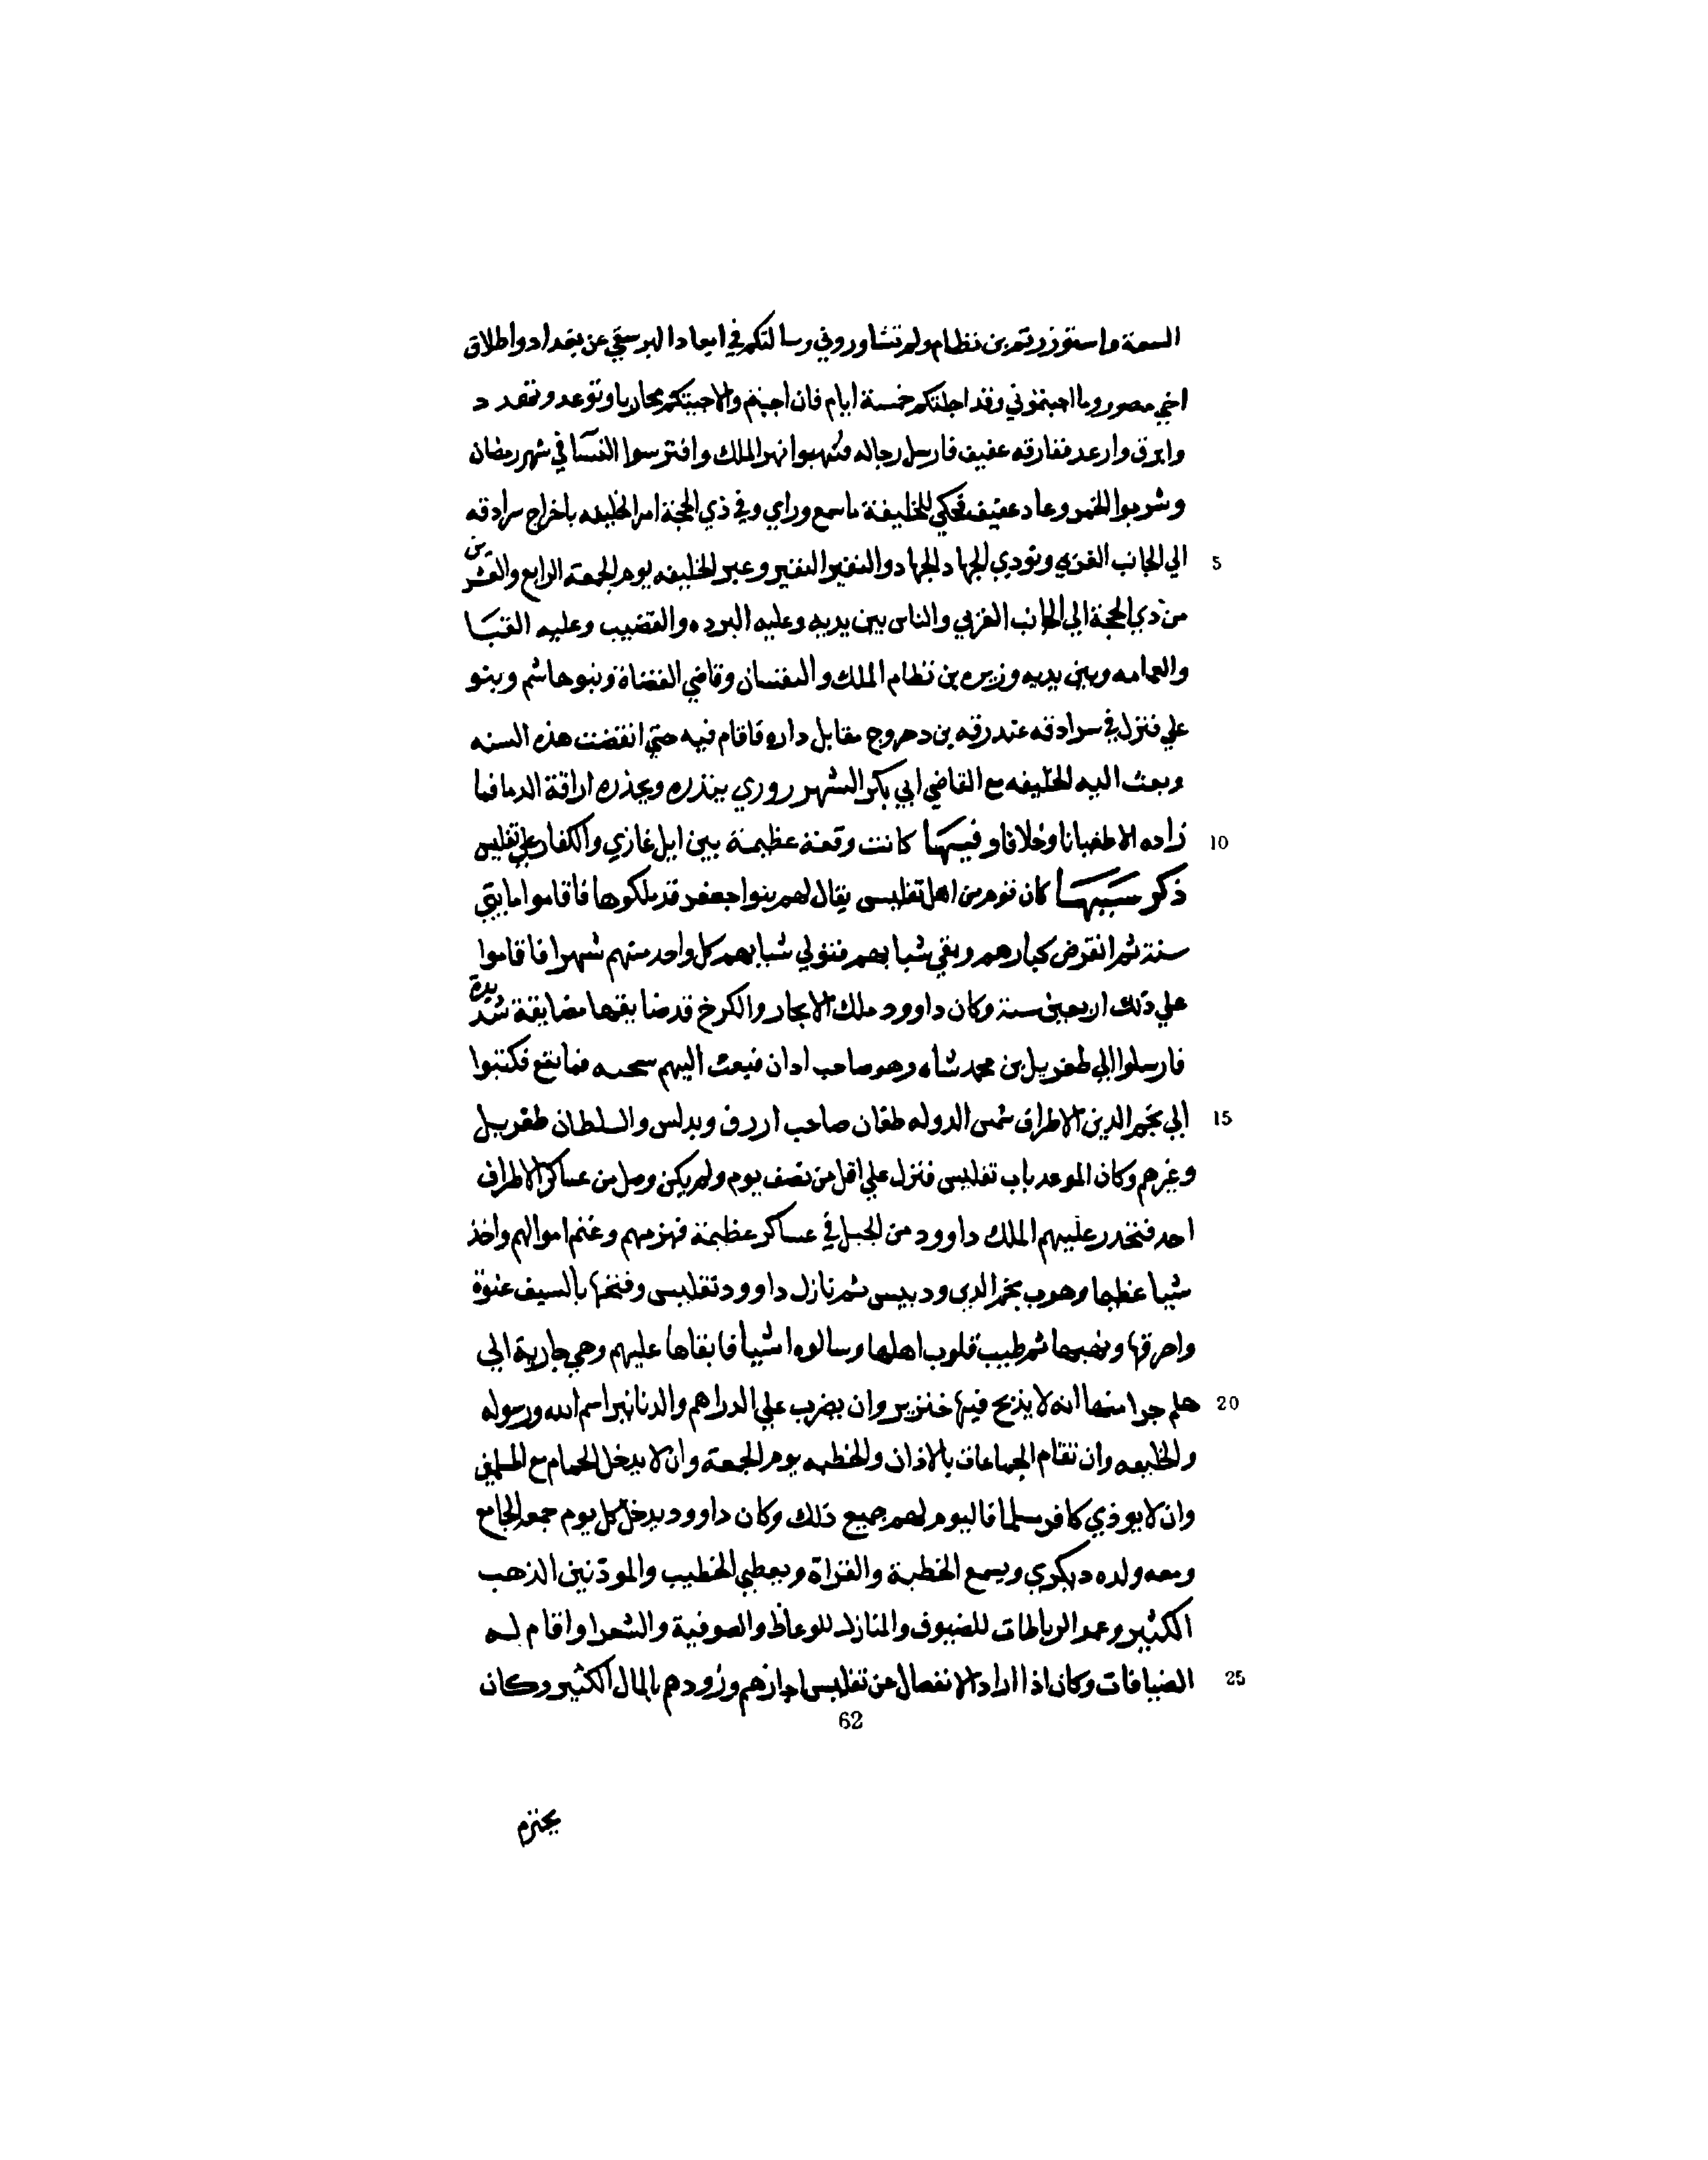 السمة واستوزرتم بن نظام ولم تشاوروني وسالتكم في ابعاد البرسقي عن بغداد واطلاق
اخي منصور وما اجبتموني وقد اجلتكم خمسة ايام فان اجبتم والا جيتكم محاربا وتوعد وتهدد
وابرق وارعد ففارقه عفيف فارسل رجاله فنهبوا نهر الملك وافترسوا النسآ في شهر رمضان
وشربوا الخمر وعاد عفيف فحكي للخليفة ما سمع وراي وفي ذي الحجة امر الخليفه باخراج سرادقه
5 الي الجانب الغربي ونودي الجهاد الجهاد والنفير النفير وعبر الخليفه يوم الجمعة الرابع والعشرين
من ذي الحجة الي الجانب الغربي والناس بين يديه وعليه البرده والقضيب وعليه القبا
والعمامه وبين يديه وزيره بن نظام الملك والنقيبان وقاضي القضاة وبنو هاشم وبنو
علي فنزل في سرادقه عند رقه بن دحروج مقابل داره فاقام فيه حتي انقضت هذه السنه
وبعث اليه الخليفه مع القاضي ابي بكر الشهرزوري ينذره ويحذره اراقة الدما فما
10 زاده الا طغيانا وخلافا وفيها كانت وقعة عظيمة بين ايل غازي والكفار علي تفليس
ذكر سببها كان قوم من اهل تفليس يقال لهم بنوا جعفر قد ملكوها فاقاموا مايتي
سنة ثم انقرض كبارهم وبقي شبابهم فتولي شبابهم كل واحد منهم شهرا فاقاموا
علي ذلك اربعين سنة وكان داوود ملك الابخاز والكرخ قد ضايقها مضايقة شديدة
فارسلوا الي طغريل بن محمد شاه وهو صاحب اران فبعث اليهم فكتبوا
15 الي نجم الدين الاطراف شمس الدوله طغان صاحب اررن وبدلس والسلطان طغريل
وغيرهم وكان الموعد باب تفليس فنزل علي اقل من نصف يوم ولم يكن وصل من عساكر الاطراف
احد فتحدر عليهم الملك داوود من الجبل في عساكر عظيمة فهزمهم وغنم اموالهم واخذ
شيا عظيما وهرب نجم الدين ودبيس ثم نازل داوود تفليس وفتحها بالسيف عنوة
واحرقها ونهبها ثم طيب قلوب اهلها وسالوه اشيا فابقاها عليهم وهي جارية الي
20 هلم جرا منها انه لا يذبح فيها خنزير وان يضرب علي الدراهم والدنانير اسم الله ورسوله
والخليفه وان تقام الجماعات بالاذان والخطبه يوم الجمعة وان لا يدخل الحمام مع المسلمين
وان لا يوذي كافر مسلما فاليوم لهم جميع ذلك وكان داوود يدخل كل يوم جمعه الجامع
ومعه ولده ديكري ويسمع الخطبة والقراة ويعطي الخطيب والموذنين الذهب
الكثير وعمر الرباطات للضيوف والمنازل للوعاظ والصوفية والشعرا واقام لهم
25 الضيافات وكان اذا اراد الانفصال عن تفليس اجازهم وزودهم بالمال الكثير وكان
62
يحترم